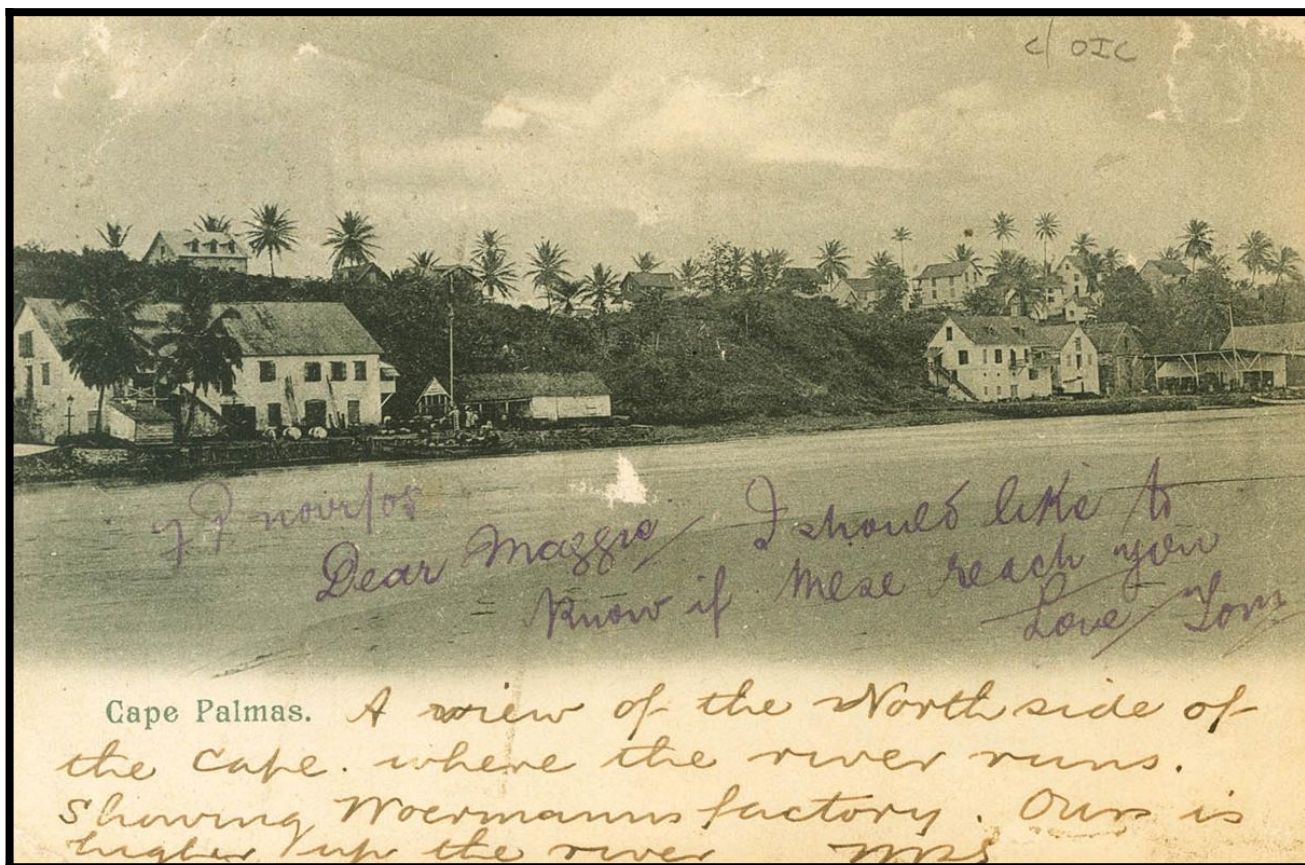 c/ OIC
Dear Maggie I should like to
know if these reach you
Love Tom
Cape Palmas. A view of the North side of
the Cape. where the river runs.
Showing Woermanns factory. Ours is
higher up the river